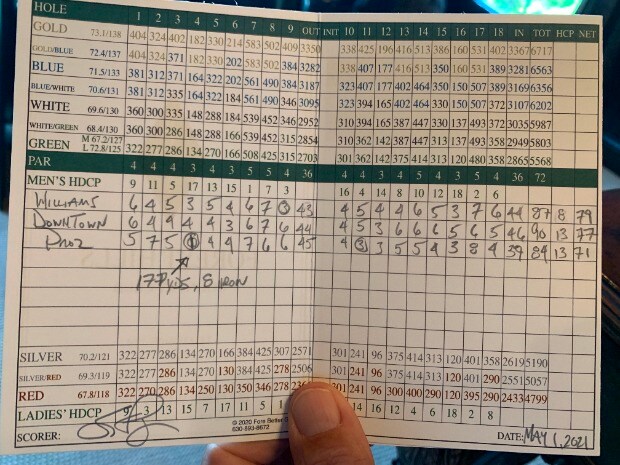 HOLE 1 2 3 4 5 6 7 8 9 OUT INIT 10 11 12 13 14 15 16 17 18 IN TOT HCP NET
GOLD 73.1/138 404 324 402 182 330 214 583 502 409 3350 338 425 196 416 513 386 160 531 402 3367 6717
GOLD/BLUE 72.4/137 404 324 371 182 330 202 583 502 384 3282 338 407 177 416 513 350 160 531 389 3281 6563
BLUE 71.5/133 381 312 371 164 322 202 561 490 384 3187 323 407 177 402 464 350 150 507 389 3169 6356
BLUE/WHITE 70.6/131 381 312 335 164 322 184 561 490 346 3095 323 394 165 402 464 330 150 507 372 3107 6202
WHITE 69.6/130 360 300 335 148 288 184 539 452 346 2952 310 394 165 387 447 330 137 493 372 3035 5987
WHITE/GREEN 68.4/130 360 300 286 148 288 166 539 452 315 2854 310 362 142 387 447 313 137 493 358 2949 5803
GREEN M 67.2/127 L 72.8/125 322 277 286 134 270 166 508 425 315 2703 301 362 142 375 414 313 120 480 358 2865 5568
PAR 4 4 4 3 4 3 5 5 4 36 4 4 3 4 5 4 3 5 4 36 72
MEN'S HDCP 9 11 5 17 13 15 1 7 3 16 4 14 8 10 12 18 2 6
WILLIAMS 6 4 5 3 5 4 6 7 3 43 4 5 4 4 6 5 3 7 6 44 87 8 79
DOWNTOWN 6 4 4 4 4 3 6 7 6 44 4 5 3 6 6 6 5 6 5 46 90 13 77
PROZ 5 7 5 1 4 4 7 6 6 45 4 3 3 5 5 4 3 8 4 39 84 13 71
177 YDS, 8 IRON
SILVER 70.2/121 322 277 286 134 270 166 384 425 307 2571 301 241 96 375 414 313 120 401 358 2619 5190
SILVER/RED 69.3/119 322 277 286 134 270 130 384 425 278 2506 301 241 96 375 414 313 120 401 290 2551 5057
RED 67.8/118 322 270 286 134 250 130 350 346 278 301 241 96 300 400 290 120 395 290 2433 4799
LADIES' HDCP 9 3 13 15 7 17 11 5 14 16 12 4 6 18 2 8
SCORER: © 2020 Fore Better 630-893-8672 DATE: MAY 1, 2021